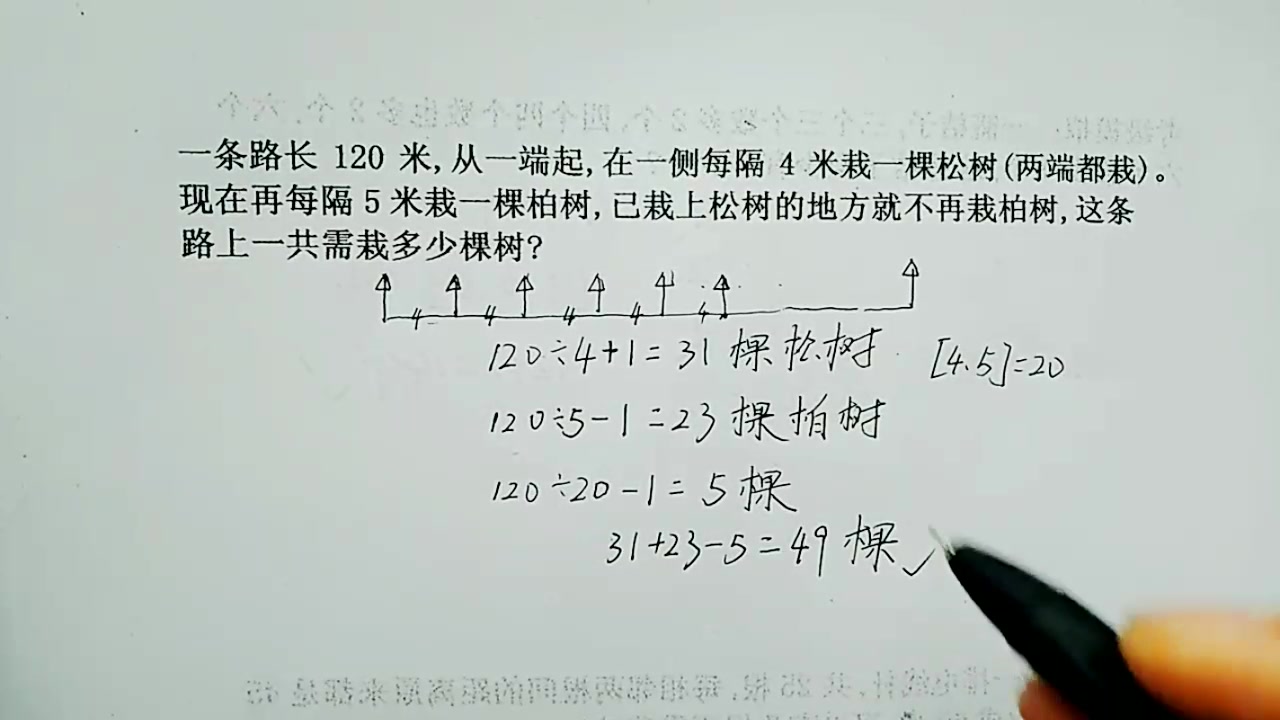 一条路长 120 米,从一端起,在一侧每隔 4 米栽一棵松树(两端都栽)。
现在再每隔 5 米栽一棵柏树,已栽上松树的地方就不再栽柏树,这条
路上一共需栽多少棵树?
4 4 4 4 4
120÷4+1=31 棵松树
[4.5]=20
120÷5-1=23 棵柏树
120÷20-1=5 棵
31+23-5=49 棵✓